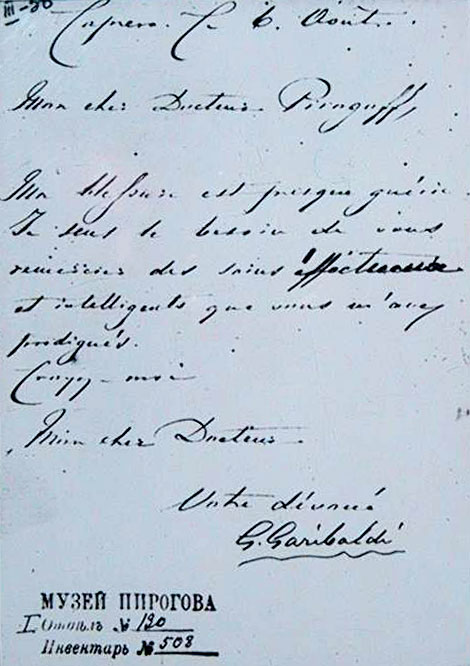 III-30
Caprera. Le 6. Août.
Mon cher Docteur Pirogoff,
Ma blessure est presque guérie.
Je sens le besoin de vous
remercier des soins affectueux
et intelligents que vous m'avez
prodigués.
Croyez-moi
Mon cher Docteur.
Votre dévoué
G. Garibaldi
МУЗЕЙ ПИРОГОВА
I Отдѣлъ № 130
Инвентарь № 508